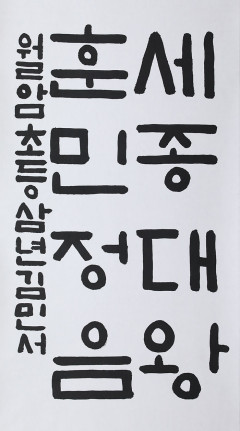 세종대왕
훈민정음
월암초등삼년김민서